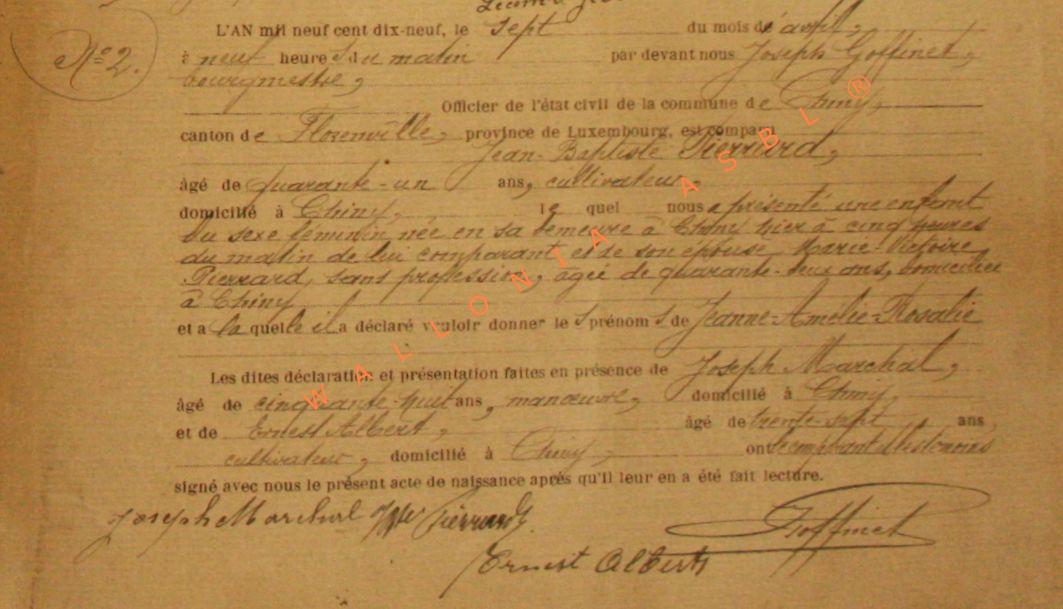 L'AN mil neuf cent dix-neuf, le sept du mois d'avril,
N° 2. à neuf heures du matin par devant nous Joseph Goffinet,
bourgmestre,
Officier de l'état civil de la commune de Chiny,
canton de Florenville, province de Luxembourg, est comparu
Jean-Baptiste Pierrard,
âgé de quarante-un ans, cultivateur,
domicilié à Chiny, le quel nous a présenté une enfant
du sexe féminin née en sa demeure à Chiny hier à cinq heures
du matin de lui comparant et de son épouse Marie-Victoire
Pierrard, sans profession, âgée de quarante-deux ans, domiciliée
à Chiny
et a laquelle il a déclaré vouloir donner les prénoms de Jeanne-Amélie-Rosalie
Les dites déclaration et présentation faites en présence de Joseph Marchal,
âgé de cinquante-huit ans, manœuvre, domicilié à Chiny,
et de Ernest Albert, âgé de trente-sept ans
cultivateur, domicilié à Chiny, ont le comparant et les témoins
signé avec nous le présent acte de naissance après qu'il leur en a été fait lecture.
Joseph Marchal Pierrard. Goffinet
Ernest Albert
WALLONIA ASBL ®